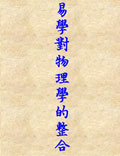 易學對物理學的整合